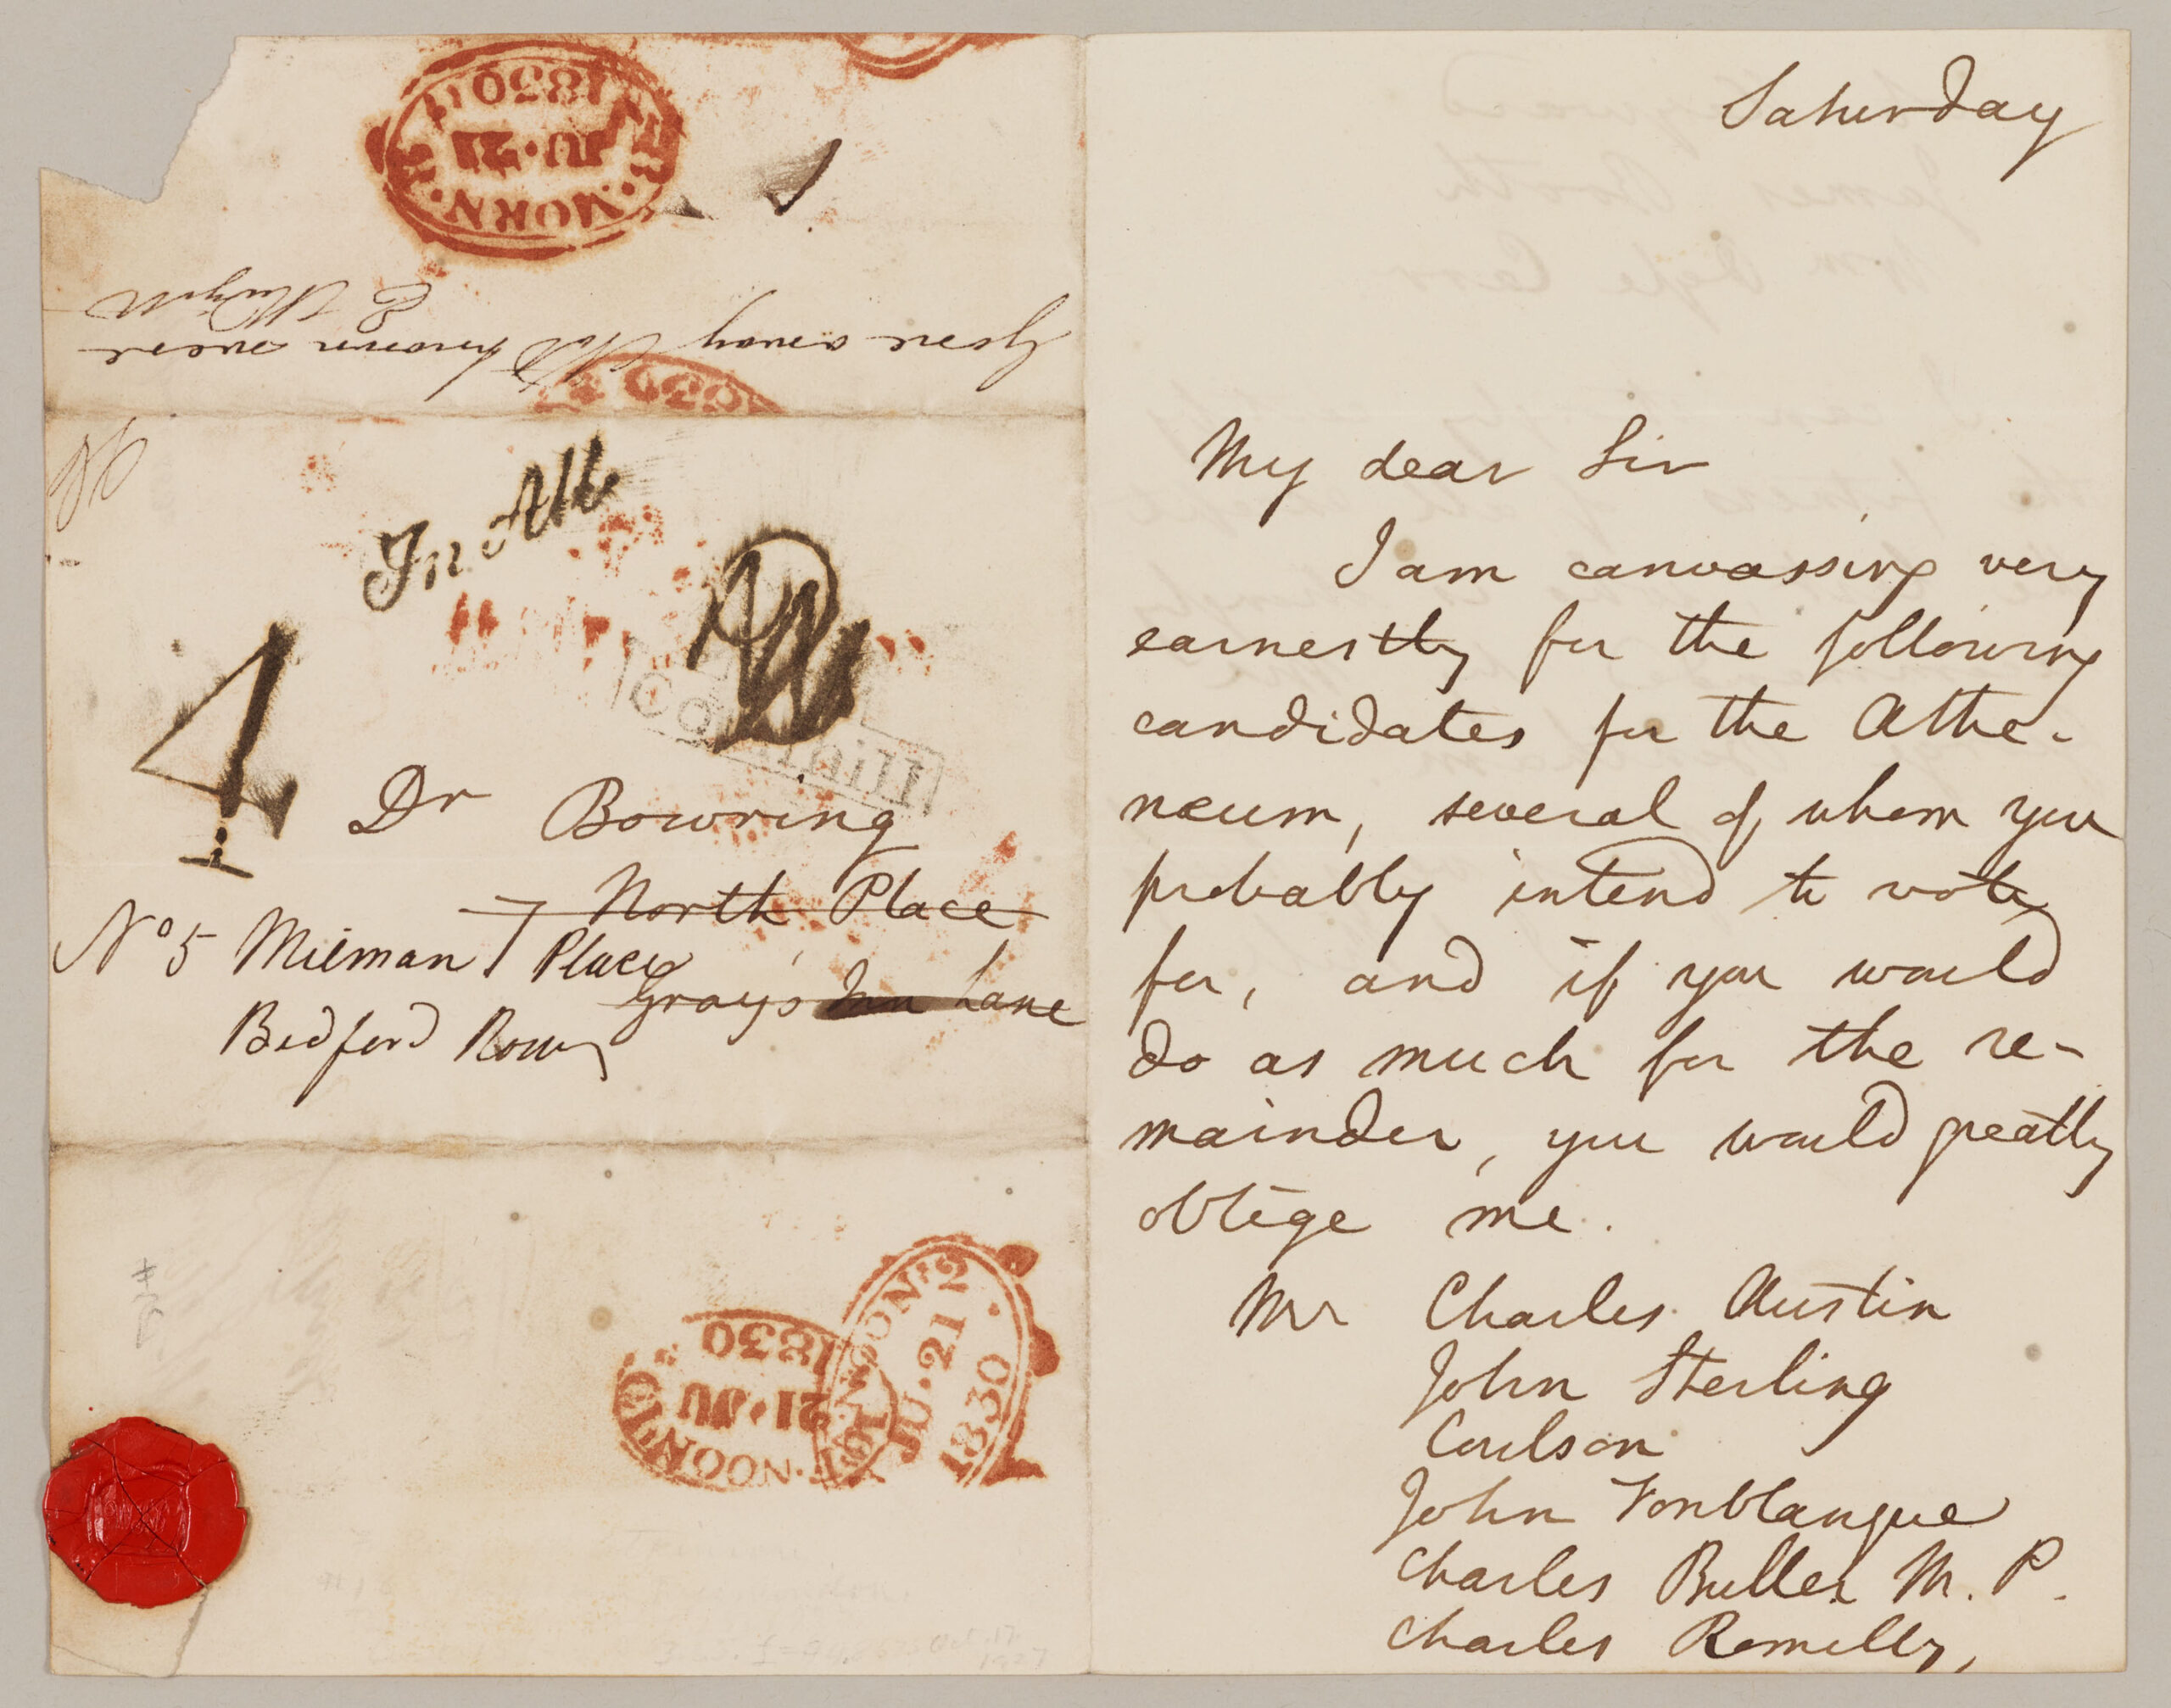 MORN.
JU.21
1830
Gone away Not known
In All
Cornhill
4
Dr Bowring
North Place
No 5 Milman Place
Grays Inn Lane
Bedford Row
NOON
21.JU
1830
NOON. 2
JU.21
1830
Saturday
My dear Sir
I am canvassing very
earnestly for the following
candidates for the Athe-
næum, several of whom you
probably intend to vote
for, and if you would
do as much for the re-
mainder, you would greatly
oblige me.
Mr Charles Austin
John Sterling
Coulson
John Fonblanque
Charles Buller M. P.
Charles Romilly,